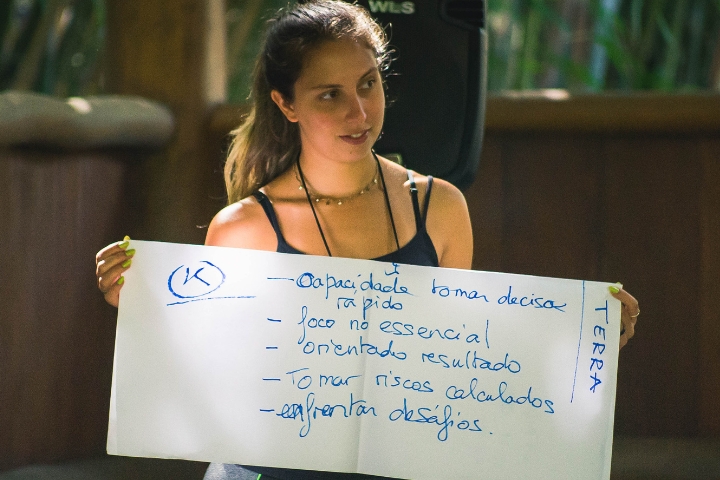 WLS
K
- Capacidade tomar decisoes
rápido
- foco no essencial
- orientado resultado
- Tomar riscos calculados
- enfrentar desáfios.
TERRA